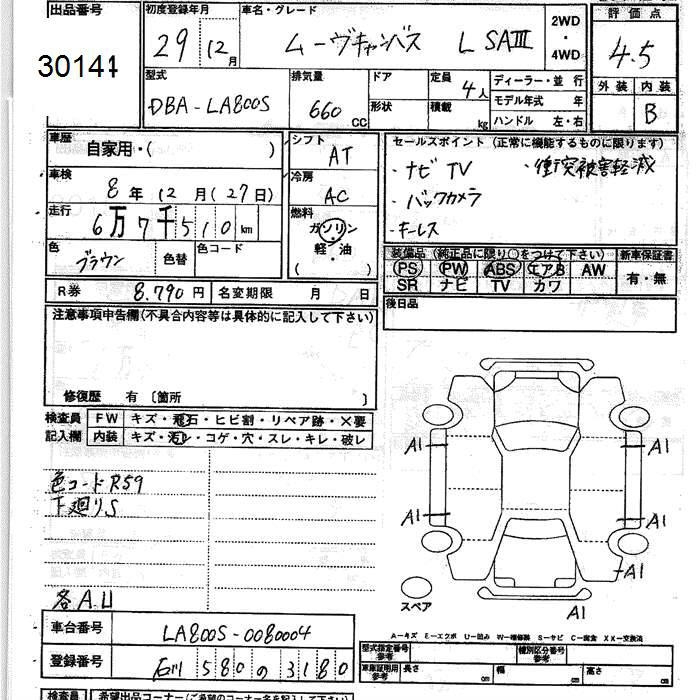 出品番号
30144
初度登録年月
29 12月
車名・グレード
ムーヴキャンバス L SAⅢ
2WD
・
4WD
評価点
4.5
外装 内装
B
型式
DBA-LA800S
排気量
660 CC
ドア
形状
定員
4人
積載
kg
ディーラー・並 行
モデル年式 年
ハンドル 左・右
車歴
自家用・( )
車検
8年 12月(27日)
走行
6万7千510km
色
ブラウン
色替
色コード
シフト
AT
冷房
AC
燃料
ガソリン
・
軽・油
( )
セールスポイント (正常に機能するものに限ります)
・ナビ TV ・衝突被害軽減
・バックカメラ
・キーレス
装備品 (純正品に限り○をつけて下さい)
PS PW ABS エアB AW
SR ナビ TV カワ
新車保証書
有・無
R券 8.790円 名変期限 月 日
後日品
注意事項申告欄(不具合内容等は具体的に記入して下さい)
修復歴 有 〔箇所 〕
検査員
記入欄
FW キズ・飛石・ヒビ割・リペア跡・×要
内装 キズ・汚レ・コゲ・穴・スレ・キレ・破レ
色コードR59
下廻り.S
各A.U
A1 A1
A1 A1
A1
A1
スペア
車台番号 LA800S-0080004
登録番号 石川 580 の 3180
A-キズ E-エクボ U-凹み W-補修跡 S-サビ C-腐食 XX-交換済
型式指定番号
参考
類別区分番号
参考
車庫証明用
参考
長さ cm 幅 cm 高さ cm
検査員 希望出品コーナー(ご希望のコーナー名を記入下さい)